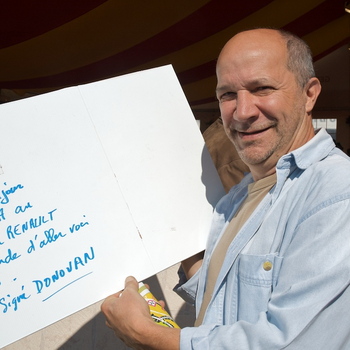 jour
au
RENAULT
d'aller voi
Signé DONOVAN